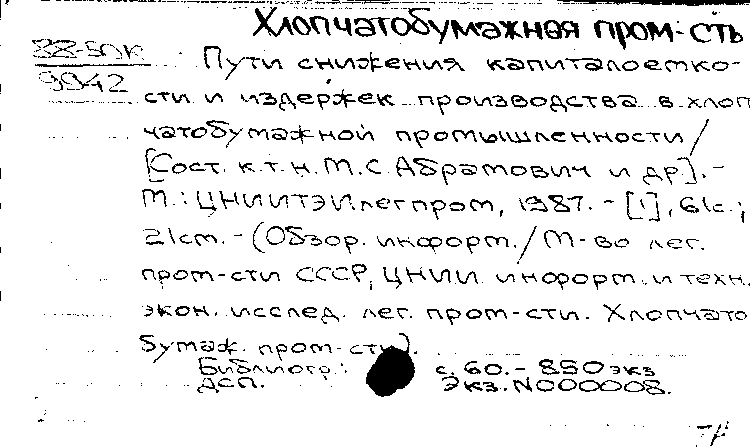 Хлопчатобумажная пром-сть
88-50К
9942
Пути снижения капиталоемко-
сти и издержек производства в хлоп
чатобумажной промышленности /
[Сост. к.т.н. М.С. Абрамович и др]. -
М.: ЦНИИТЭИлегпром, 1987. - [1], 61с.;
21см. - (Обзор. информ. / М-во лег.
пром-сти СССР, ЦНИИ информ. и техн.
экон. исслед. лег. пром-сти. Хлопчато
бумаж. пром-сти).
Библиогр.: с. 60. - 850 экз
ДСП. Экз. N000008.